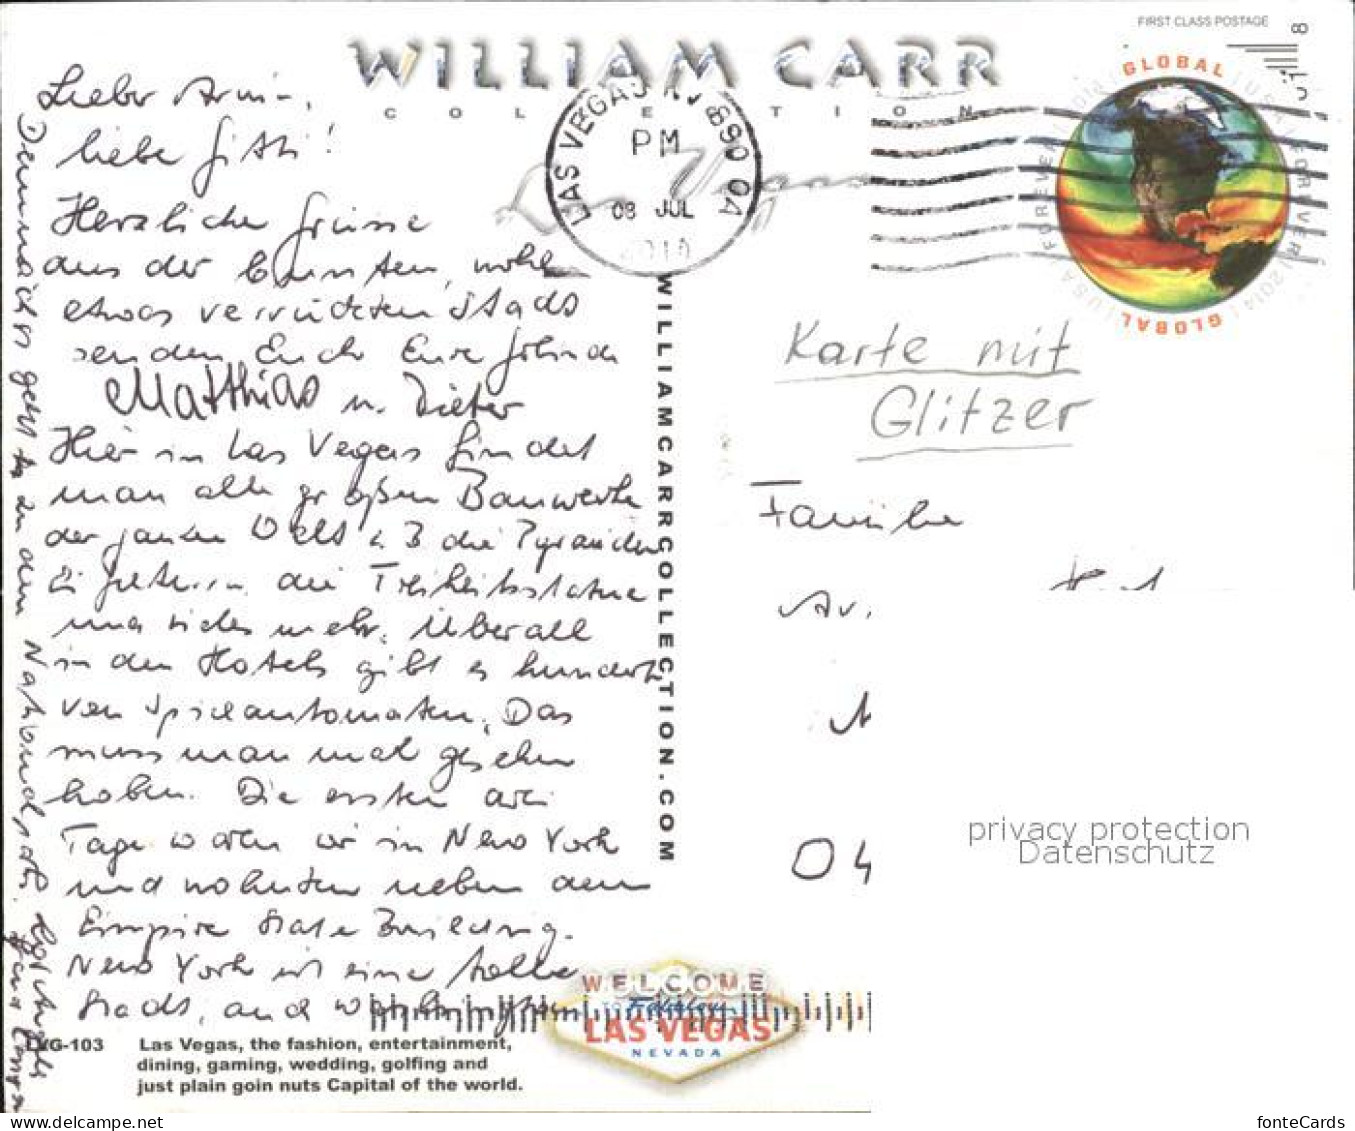 WILLIAM CARR
COLLECTION
FIRST CLASS POSTAGE
GLOBAL
USA FOREVER 2014
GLOBAL
LAS VEGAS NV 890 04
PM
08 JUL
Las Vegas
Lieber Armin,
liebe Gitti!
Herzliche Grüsse
aus der bunten, wohl
etwas verrückten Stadt
senden Euch Eure Freunde
Matthias u. Dieter
Hier in Las Vegas findet
man alle großen Bauwerke
der ganzen Welt z B die Pyramiden
die Freiheitsstatue
und vieles mehr. Überall
in den Hotels gibt es hunderte
von Spielautomaten. Das
muss man mal gesehen
haben. Die ersten drei
Tage waren wir in New York
und wohnten neben dem
Empire State Building.
New York ist eine tolle
Stadt, auch
Demnächst geht es zu den Nationalparks.
WILLIAMCARRCOLLECTION.COM
Karte mit
Glitzer
Familie
Av.
04
privacy protection
Datenschutz
WELCOME
TO Fabulous
LAS VEGAS
NEVADA
LVG-103
Las Vegas, the fashion, entertainment,
dining, gaming, wedding, golfing and
just plain goin nuts Capital of the world.
www.delcampe.net
fonteCards